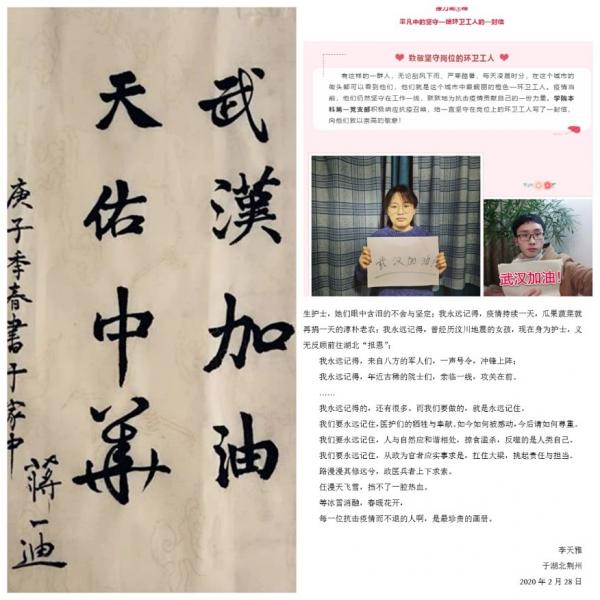 武漢加油
天佑中華
庚子季春書于家中
蔣一迪
平凡中的坚守—给环卫工人的一封信
致敬坚守岗位的环卫工人
有这样的一群人，无论刮风下雨、严寒酷暑，每天凌晨时分，在这个城市的
街头都可以看到他们，他们就是这个城市中最靓丽的橙色—环卫工人。疫情当
前，他们仍然坚守在工作一线，默默地为抗击疫情贡献自己的一份力量。学院本
科第一党支部积极响应抗疫召唤，给一直坚守在岗位上的环卫工人写了一封信，
向他们致以崇高的敬意！
武汉加油！
武汉加油！
生护士，她们眼中含泪的不舍与坚定；我永远记得，疫情持续一天，瓜果蔬菜就
再捐一天的淳朴老农；我永远记得，曾经历汶川地震的女孩，现在身为护士，义
无反顾前往湖北“报恩”；
我永远记得，来自八方的军人们，一声号令，冲锋上阵；
我永远记得，年近古稀的院士们，亲临一线，攻关在前。
……
我永远记得的，还有很多。而我们要做的，就是永远记住。
我们要永远记住，医护们的牺牲与奉献。如今如何被感动，今后请如何尊重。
我们要永远记住，人与自然应和谐相处，掠食滥杀，反噬的是人类自己。
我们要永远记住，从政为官者应实事求是，扛住大梁，挑起责任与担当。
路漫漫其修远兮，政医兵者上下求索。
任漫天飞雪，挡不了一腔热血。
等冰雪消融，春暖花开，
每一位抗击疫情而不退的人啊，是最珍贵的画册。
李天雅
于湖北荆州
2020 年 2 月 28 日